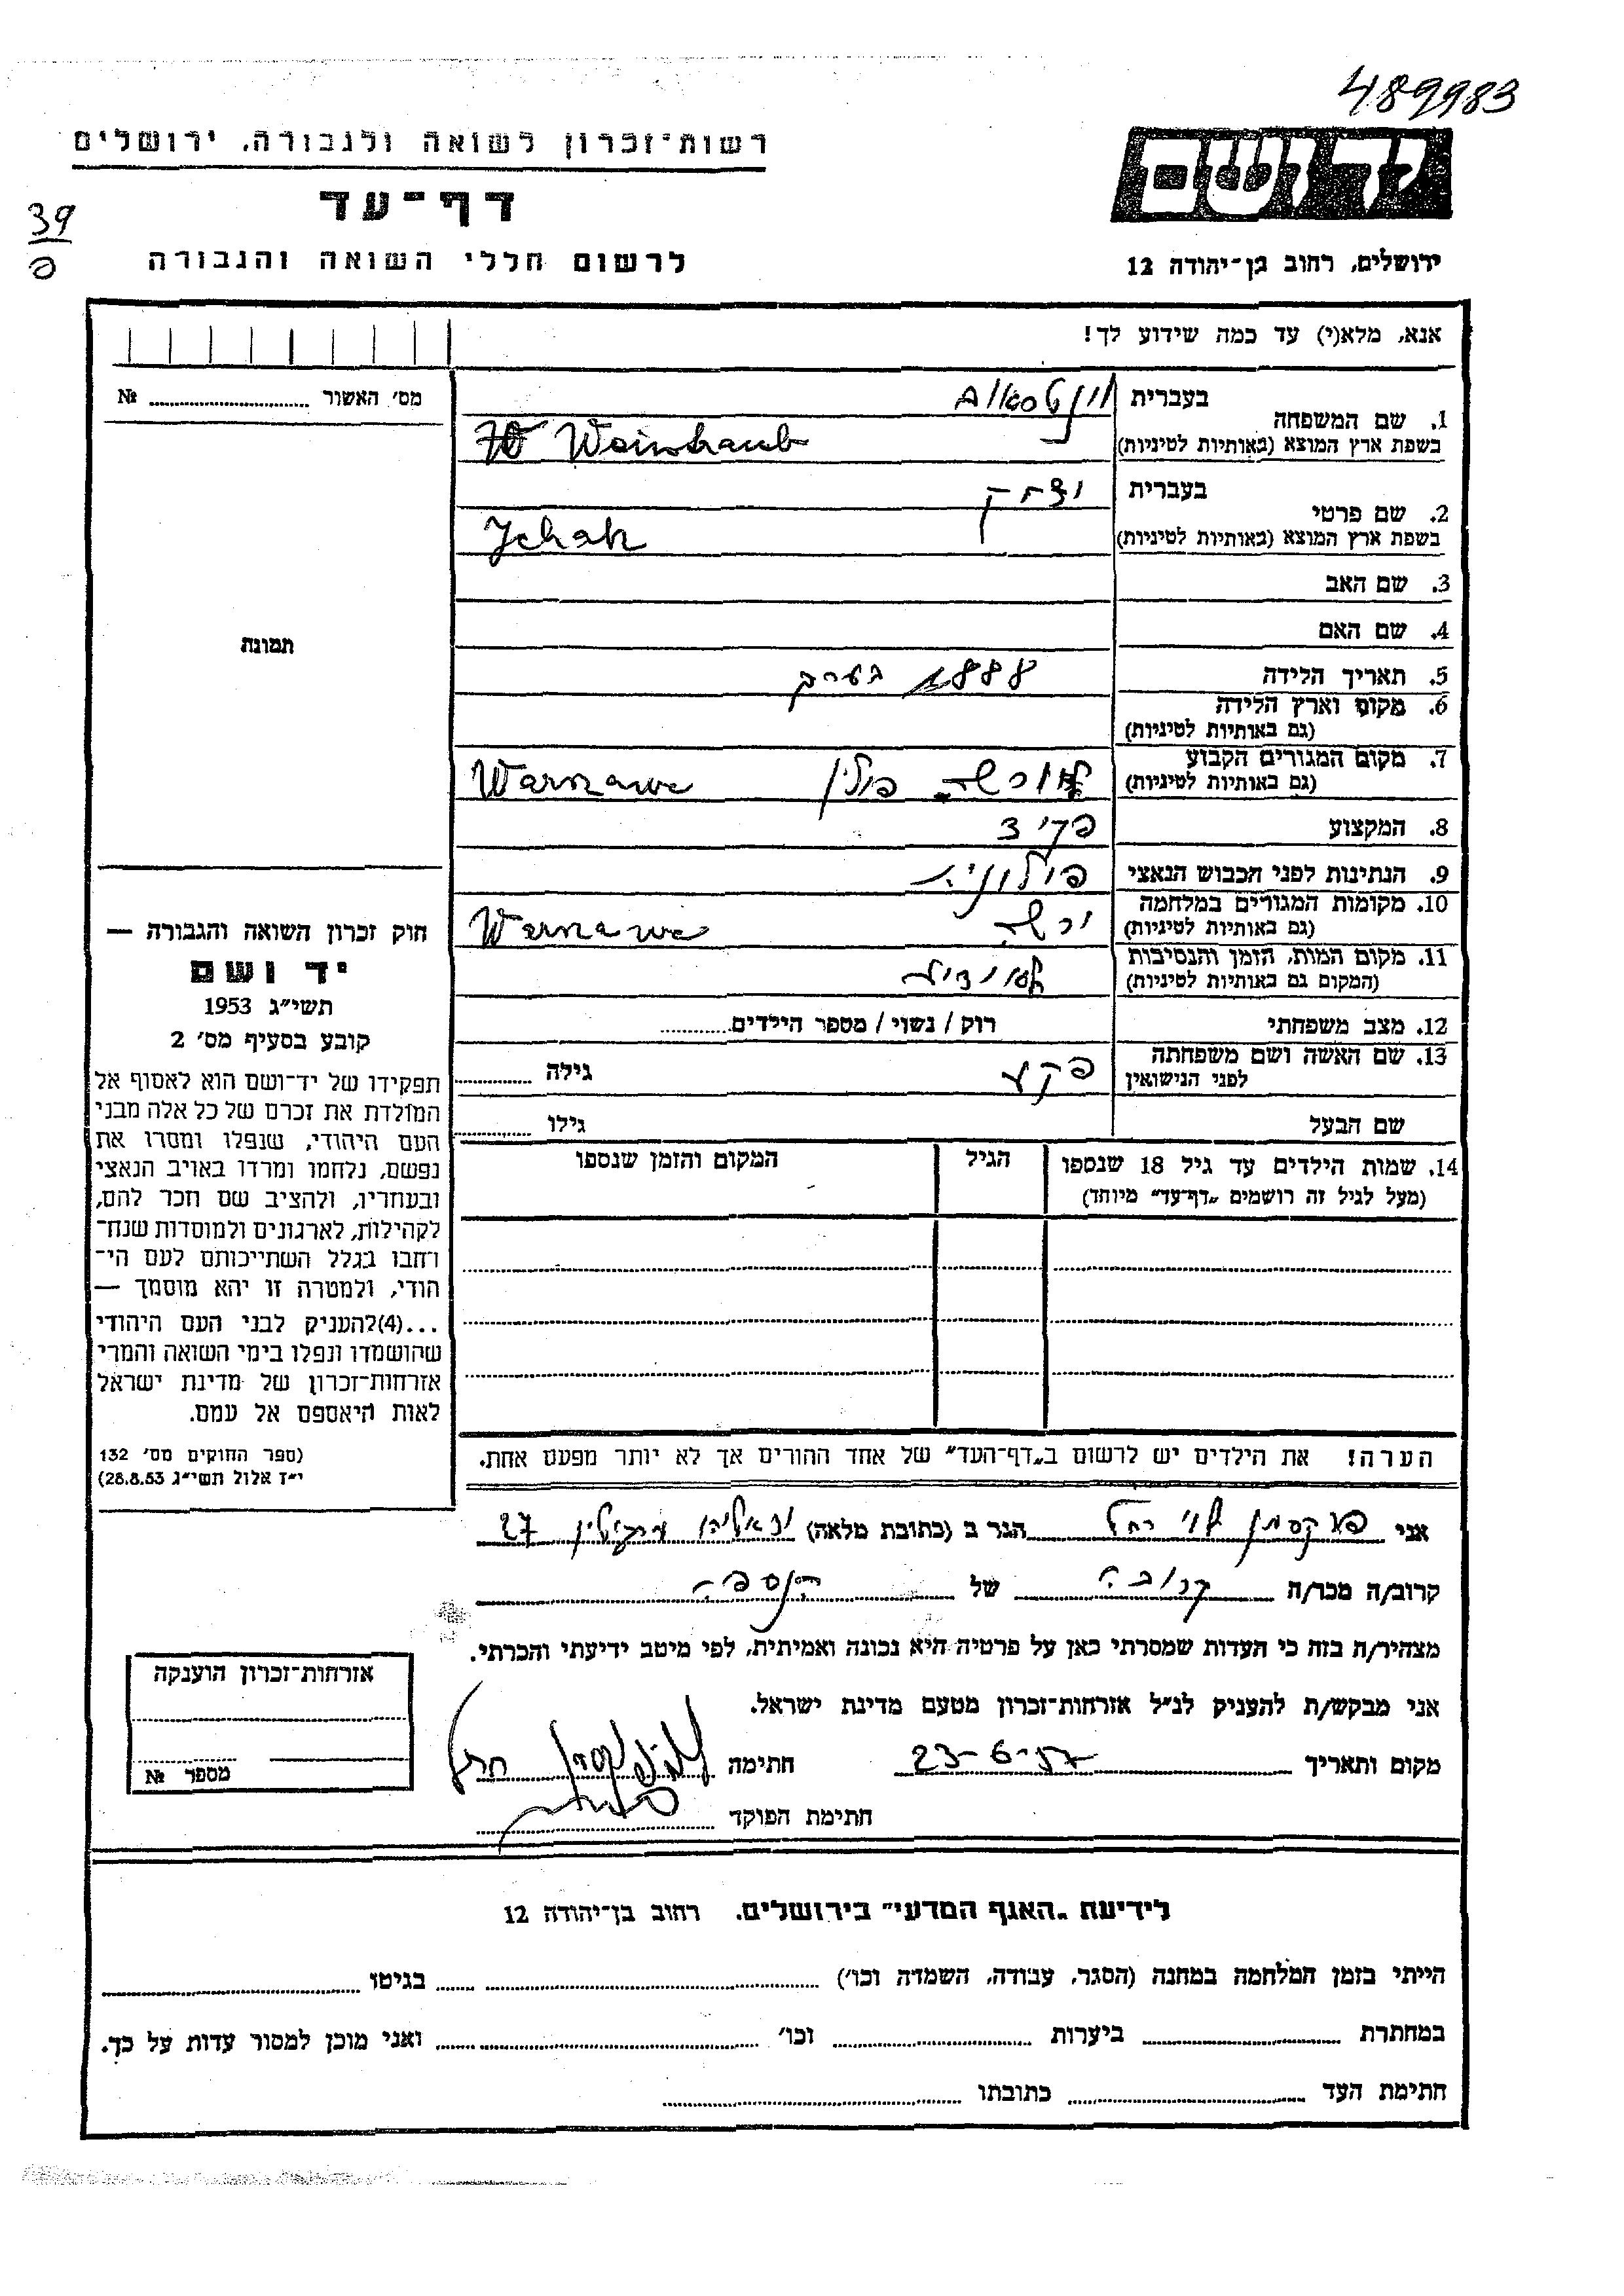 489983
רשות־זכרון לשואה ולגבורה, ירושלים
יד ושם
דף־עד
39
לרשום חללי השואה והגבורה
ירושלים, רחוב בן־יהודה 12
אנא, מלא(י) עד כמה שידוע לך!
מס׳ האשור № ..........
1. שם המשפחה
בעברית
בשפת ארץ המוצא (באותיות לטיניות) Weintraub
2. שם פרטי
בעברית יצחק
בשפת ארץ המוצא (באותיות לטיניות) Ichak
3. שם האב
4. שם האם
5. תאריך הלידה 1888 בערך
6. מקום וארץ הלידה
(גם באותיות לטיניות)
7. מקום המגורים הקבוע ורשה פולין Warszawa
(גם באותיות לטיניות)
8. המקצוע פקיד
9. הנתינות לפני הכבוש הנאצי פולונית
10. מקומות המגורים במלחמה ורשה Warszawa
(גם באותיות לטיניות)
11. מקום המות, הזמן והנסיבות
(המקום גם באותיות לטיניות)
12. מצב משפחתי רוק / נשוי / מספר הילדים..........
13. שם האשה ושם משפחתה
לפני הנישואין גילה ..........
שם הבעל גילו ..........
14. שמות הילדים עד גיל 18 שנספו הגיל המקום והזמן שנספו
(מעל לגיל זה רושמים „דף־עד״ מיוחד)
הערה! את הילדים יש לרשום ב„דף־העד״ של אחד ההורים אך לא יותר מפעם אחת.
תמונה
חוק זכרון השואה והגבורה —
יד ושם
תשי״ג 1953
קובע בסעיף מס׳ 2
תפקידו של יד־ושם הוא לאסוף אל
המולדת את זכרם של כל אלה מבני
העם היהודי, שנפלו ומסרו את
נפשם, נלחמו ומרדו באויב הנאצי
ובעוזריו, ולהציב שם וזכר להם,
לקהילות, לארגונים ולמוסדות שנח־
רחבו בגלל השתייכותם לעם הי־
הודי, ולמטרה זו יהא מוסמך —
...(4)להעניק לבני העם היהודי
שהושמדו ונפלו בימי השואה והמרי
אזרחות־זכרון של מדינת ישראל
לאות היאספם אל עמם.
(ספר החוקים מס׳ 132
י״ז אלול תשי״ג 28.8.53)
אני רחל הגר ב (כתובת מלאה) 27
קרוב/ה מכר/ה קרובה של הנספה
מצהיר/ה בזה כי העדות שמסרתי כאן על פרטיה היא נכונה ואמיתית, לפי מיטב ידיעתי והכרתי.
אני מבקש/ת להעניק לנ״ל אזרחות־זכרון מטעם מדינת ישראל.
מקום ותאריך 23-6-57 חתימה
חתימת הפוקד
אזרחות־זכרון הוענקה
מספר №
לידיעת „האגף המדעי״ בירושלים, רחוב בן־יהודה 12
הייתי בזמן המלחמה במחנה (הסגר, עבודה, השמדה וכו׳) .......... בגיטו ..........
במחתרת .......... ביערות .......... וכו׳ .......... ואני מוכן למסור עדות על כך.
חתימת העד .......... כתובתו ..........